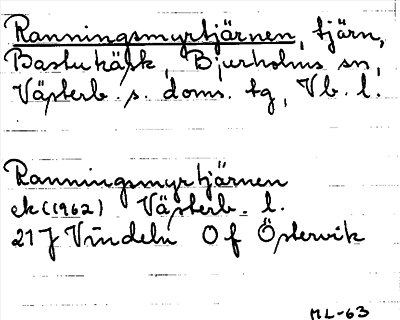 Ranningsmyrtjärnen, tjärn,
Bastuträsk, Bjurholms sn,
Västerb. s. doms. tg, Vb. l.
Ranningsmyrtjärnen
ek (1962) Västerb. l.
21J Vindeln 0f Östervik
ML-63